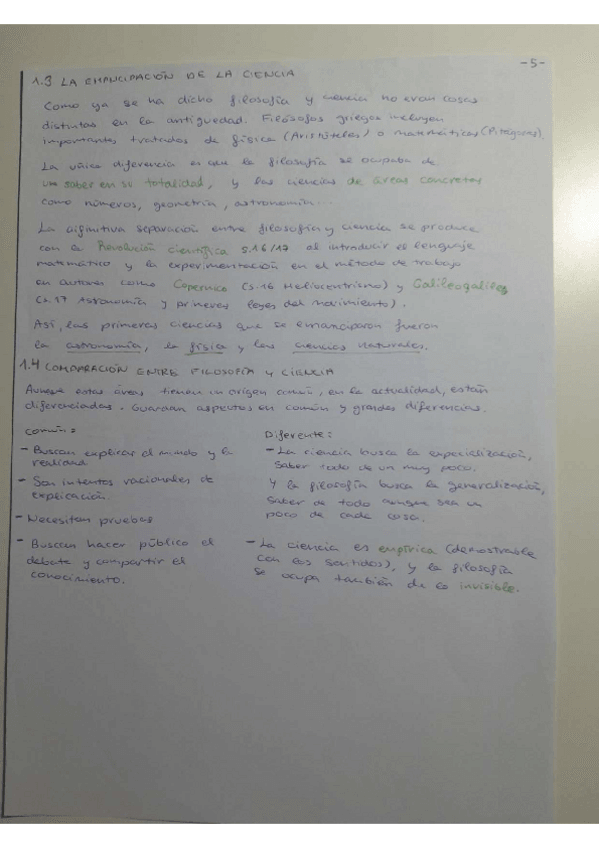 -5-
1.3 LA EMANCIPACIÓN DE LA CIENCIA
Como ya se ha dicho filosofía y ciencia no eran cosas
distintas en la antiguedad. Filósofos griegos incluyen
importantes tratados de física (Aristóteles) o matemáticas (Pitágoras).
La única diferencia es que la filosofía se ocupaba de
un saber en su totalidad, y las ciencias de áreas concretas
como números, geometría, astronomía...
La difinitiva separación entre filosofía y ciencia se produce
con la Revolución científica s.16/17 al introducir el lenguaje
matemático y la experimentación en el método de trabajo
en autores como Copernico (s.16 Heliocentrismo) y Galileo galilei
(s.17 Astronomía y primeras leyes del movimiento).
Así, las primeras ciencias que se emanciparon fueron
la astronomía, la física y las ciencias naturales.
1.4 COMPARACIÓN ENTRE FILOSOFÍA Y CIENCIA
Aunque estas áreas tienen un origen común, en la actualidad, están
diferenciadas. Guardan aspectos en común y grandes diferencias.
Común:
- Buscan explicar el mundo y la
realidad
- Son intentos racionales de
explicación.
- Necesitan pruebas
- Buscan hacer público el
debate y compartir el
conocimiento.
Diferente:
- La ciencia busca la especialización,
saber todo de un muy poco.
Y la filosofía busca la generalización,
saber de todo aunque sea un
poco de cada cosa.
- La ciencia es empírica (demostrable
con los sentidos), y la filosofía
se ocupa también de lo invisible.